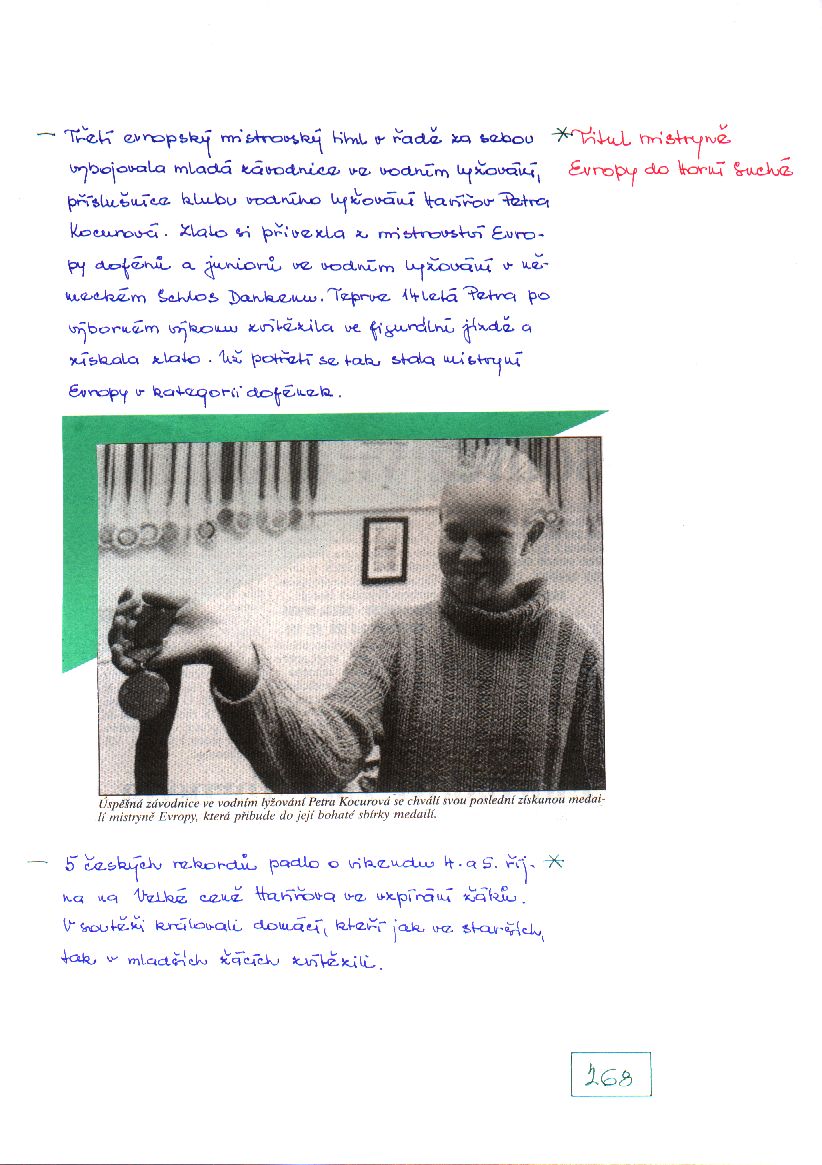 — Třetí evropský mistrovský titul v řadě za sebou
vybojovala mladá závodnice ve vodním lyžování,
příslušnice klubu vodního lyžování Havířov Petra
Kocurová. Zlato si přivezla z mistrovství Evro-
py dofénů a juniorů ve vodním lyžování v ně-
meckém Schlos Dankenu. Teprve 14letá Petra po
výborném výkonu zvítězila ve figurální jízdě a
získala zlato. Už potřetí se tak stala mistryní
Evropy v kategorii dofének.
* Titul mistryně
Evropy do Horní Suché
Úspěšná závodnice ve vodním lyžování Petra Kocurová se chválí svou poslední získanou medai-
lí mistryně Evropy, která přibude do její bohaté sbírky medailí.
— 5 českých rekordů padlo o víkendu 4. a 5. říj- *
na na Velké ceně Havířova ve vzpírání žáků.
V soutěži kralovali domácí, kteří jak ve starších,
tak v mladších žácích zvítězili.
268